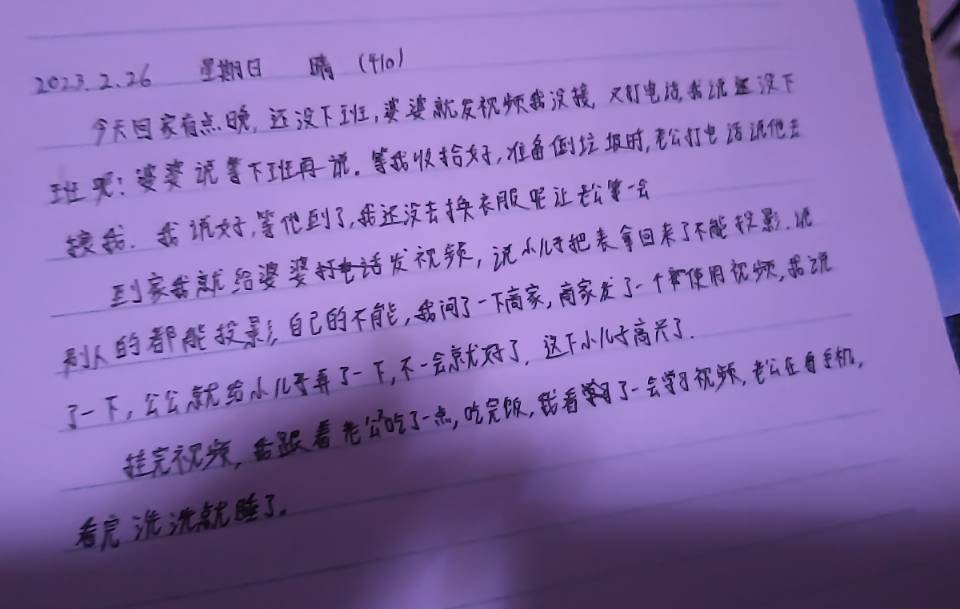 2023.2.26 星期日 晴 (410)
今天回家有点晚,还没下班,婆婆就发视频我没接,又打电话,我说还没下
班呢!婆婆说等下班再说。等我收拾好,准备倒垃圾时,老公打电话说他去
接我.我说好,等他到了,我还没去换衣服呢让老公等一会
到家我就给婆婆打电话发视频,说小儿子把表拿回来了不能投影.说
别人的都能投影,自己的不能,我问了一下商家,商家发了一个使用视频,我说
了一下,公公就给小儿子弄了一下,不一会就好了,这下小儿子高兴了.
挂完视频,我跟着老公吃了一点,吃完饭,我看了一会学习视频,老公在看手机,
看完洗洗就睡了。